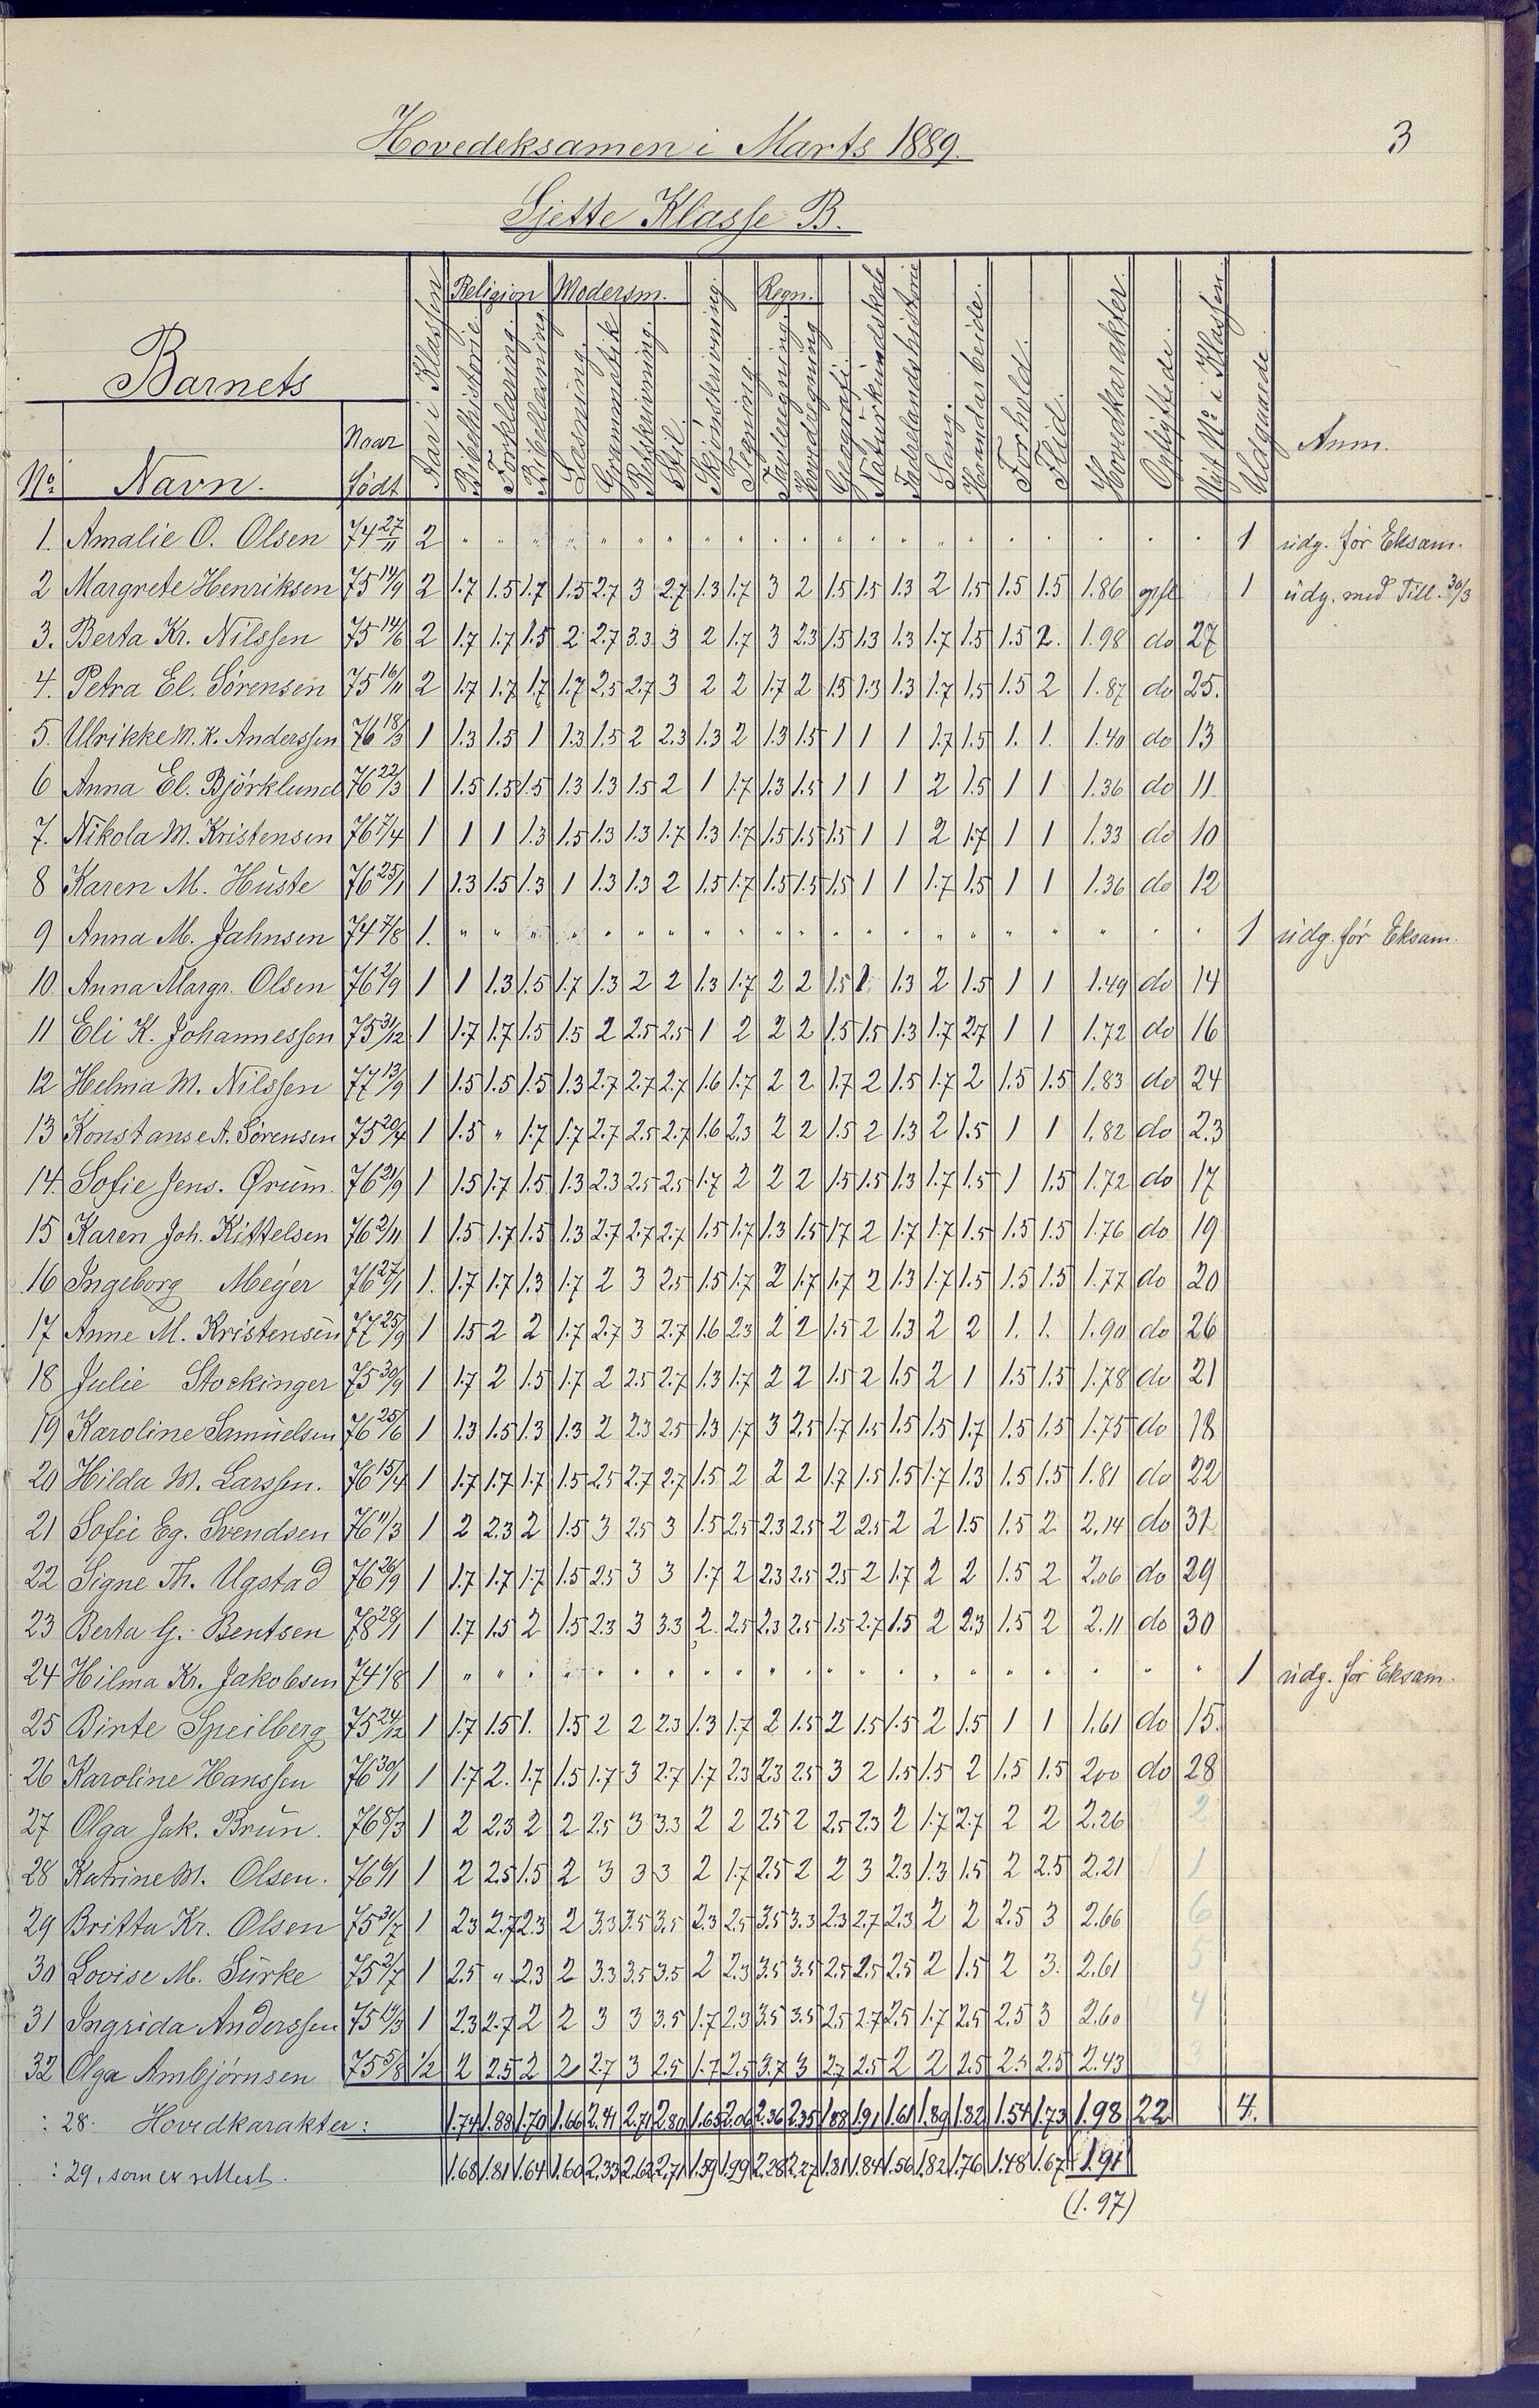 3
Hovedeksamen i Marts 1889.
Sjette Klasse B.
Barnets
No. Navn. Naar Født Aar i Klassen Religion Bibelhistorie Forklaring. Bibellæsning Modersm. Læsning. Grammatik Retskrivning. Stil. Skjønskrivning. Tegning. Regn. Tavleregning Hovedregning Geografi. Naturkundskab Fædrelandshistorie Sang. Haandarbeide. Forhold. Flid. Hovedkarakter. Opflyttede. Nyt No i Klassen. Udgaaede Anm.
1. Amalie O. Olsen 74 27/11 2 " " " " " " " " " " " " " " " " " " " " " 1 udg. før Eksam.
2 Margrete Henriksen 75 14/9 2 1.7 1.5 1.7 1.5 2.7 3 2.7 1.3 1.7 3 2 1.5 1.5 1.3 2 1.5 1.5 1.5 1.86 opfl 1 udg. med Till. 30/3
3. Berta Kr. Nilssen 75 14/6 2 1.7 1.7 1.5 2 2.7 3.3 3 2 1.7 3 2.3 1.5 1.3 1.3 1.7 1.5 1.5 2. 1.98 do 27
4. Petra El. Sørensen 75 16/11 2 1.7 1.7 1.7 1.7 2.5 2.7 3 2 2 1.7 2 1.5 1.3 1.3 1.7 1.5 1.5 2 1.87 do 25.
5. Ulrikke M. K. Anderssen 76 18/3 1 1.3 1.5 1 1.3 1.5 2 2.3 1.3 2 1.3 1.5 1 1 1 1.7 1.5 1. 1. 1.40 do 13
6 Anna El. Bjørklund 76 22/3 1 1.5 1.5 1.5 1.3 1.3 1.5 2 1 1.7 1.3 1.5 1 1 1 2 1.5 1 1 1.36 do 11
7. Nikola M. Kristensen 76 7/4 1 1 1 1.3 1.5 1.3 1.3 1.7 1.3 1.7 1.5 1.5 1.5 1 1 2 1.7 1 1 1.33 do 10
8 Karen M. Huste 76 25/1 1 1.3 1.5 1.3 1 1.3 1.3 2 1.5 1.7 1.5 1.5 1.5 1 1 1.7 1.5 1 1 1.36 do 12
9 Anna M. Jahnsen 74 7/8 1. " " " " " " " " " " " " " " " " " " " " " 1 udg. før Eksam.
10. Anna Margr. Olsen 76 2/9 1 1 1.3 1.5 1.7 1.3 2 2 1.3 1.7 2 2 1.5 1. 1.3 2 1.5 1 1 1.49 do 14
11 Eli K. Johannessen 75 31/12 1 1.7 1.7 1.5 1.5 2 2.5 2.5 1 2 2 2 1.5 1.5 1.3 1.7 2.7 1 1 1.72 do 16
12 Helma M. Nilssen 77 13/9 1 1.5 1.5 1.5 1.3 2.7 2.7 2.7 1.6 1.7 2 2 1.7 2 1.5 1.7 2 1.5 1.5 1.83 do 24
13 Konstanse A. Sørensen 75 20/4 1 1.5 " 1.7 1.7 2.7 2.5 2.7 1.6 2.3 2 2 1.5 2 1.3 2 1.5 1 1 1.82 do 23
14. Sofie Jens. Ørum 76 21/9 1 1.5 1.7 1.5 1.3 2.3 2.5 2.5 1.7 2 2 2 1.5 1.5 1.3 1.7 1.5 1 1.5 1.72 do 17
15 Karen Joh. Kittelsen 76 2/11 1 1.5 1.7 1.5 1.3 2.7 2.7 2.7 1.5 1.7 1.3 1.5 1.7 2 1.7 1.7 1.5 1.5 1.5 1.76 do 19
16 Ingeborg Meyer 76 27/1 1. 1.7 1.7 1.3 1.7 2 3 2.5 1.5 1.7 2 1.7 1.7 2 1.3 1.7 1.5 1.5 1.5 1.77 do 20
17 Anne M. Kristensen 77 25/9 1 1.5 2 2 1.7 2.7 3 2.7 1.6 2.3 2 2 1.5 2 1.3 2 2 1. 1. 1.90 do 26
18 Julie Stockinger 75 30/9 1 1.7 2 1.5 1.7 2 2.5 2.7 1.3 1.7 2 2 1.5 2 1.5 2 1 1.5 1.5 1.78 do 21
19 Karoline Samuelsen 76 25/6 1 1.3 1.5 1.3 1.3 2 2.3 2.5 1.3 1.7 3 2.5 1.7 1.5 1.5 1.5 1.7 1.5 1.5 1.75 do 18
20 Hilda M. Larssen. 76 15/4 1 1.7 1.7 1.7 1.5 2.5 2.7 2.7 1.5 2 2 2 1.7 1.5 1.5 1.7 1.3 1.5 1.5 1.81 do 22
21 Sofie Eg. Svendsen 76 11/3 1 2 2.3 2 1.5 3 2.5 3 1.5 2.5 2.3 2.5 2 2.5 2 2 1.5 1.5 2 2.14 do 31
22 Signe Th. Ugstad 76 26/9 1 1.7 1.7 1.7 1.5 2.5 3 3 1.7 2 2.3 2.5 2.5 2 1.7 2 2 1.5 2 2.06 do 29
23 Berta G. Bentsen 78 28/1 1 1.7 1.5 2 1.5 2.3 3 3.3 2 2.5 2.3 2.5 1.5 2.7 1.5 2 2.3 1.5 2 2.11 do 30
24 Hilma Kr. Jakobsen 74 1/8 1 " " " " " " " " " " " " " " " " " " " " " 1 udg. før Eksam.
25 Birte Speilberg 75 24/12 1 1.7 1.5 1. 1.5 2 2 2.3 1.3 1.7 2 1.5 2 1.5 1.5 2 1.5 1 1 1.61 do 15.
26 Karoline Hanssen 76 30/1 1 1.7 2. 1.7 1.5 1.7 3 2.7 1.7 2.3 2.3 2.5 3 2 1.5 1.5 2 1.5 1.5 2.00 do 28
27 Olga Jak. Brun. 76 8/3 1 2 2.3 2 2 2.5 3 3.3 2 2 2.5 2 2.5 2.3 2 1.7 2.7 2 2 2.26 2
28 Katrine M. Olsen. 76 6/1 1 2 2.5 1.5 2 3 3 3 2 1.7 2.5 2 2 3 2.3 1.3 1.5 2 2.5 2.21 1
29 Britta Kr. Olsen 75 31/7 1 2.3 2.7 2.3 2 3.3 3.5 3.5 2.3 2.5 3.5 3.3 2.3 2.7 2.3 2 2 2.5 3 2.66 6
30 Lovise M. Surke 75 2/7 1 2.5 " 2.3 2 3.3 3.5 3.5 2 2.3 3.5 3.5 2.5 2.5 2.5 2 1.5 2 3. 2.61 5
31 Ingrida Anderssen 75 12/3 1 2.3 2.7 2 2 3 3 3.5 1.7 2.3 3.5 3.5 2.5 2.7 2.5 1.7 2.5 2.5 3 2.60 4
32 Olga Ambjørnsen 75 5/8 1/2 2 2.5 2 2 2.7 3 2.5 1.7 2.5 3.7 3 2.7 2.5 2 2 2.5 2.5 2.5 2.43 3
: 28. Hovedkarakter: 1.74 1.88 1.70 1.66 2.41 2.71 2.80 1.65 2.06 2.36 2.35 1.88 1.91 1.61 1.89 1.82 1.54 1.73 1.98 22 4.
: 29, som er 1.68 1.81 1.64 1.60 2.33 2.62 2.71 1.59 1.99 2.28 2.27 1.81 1.84 1.56 1.82 1.76 1.48 1.67 1.91
(1.97)